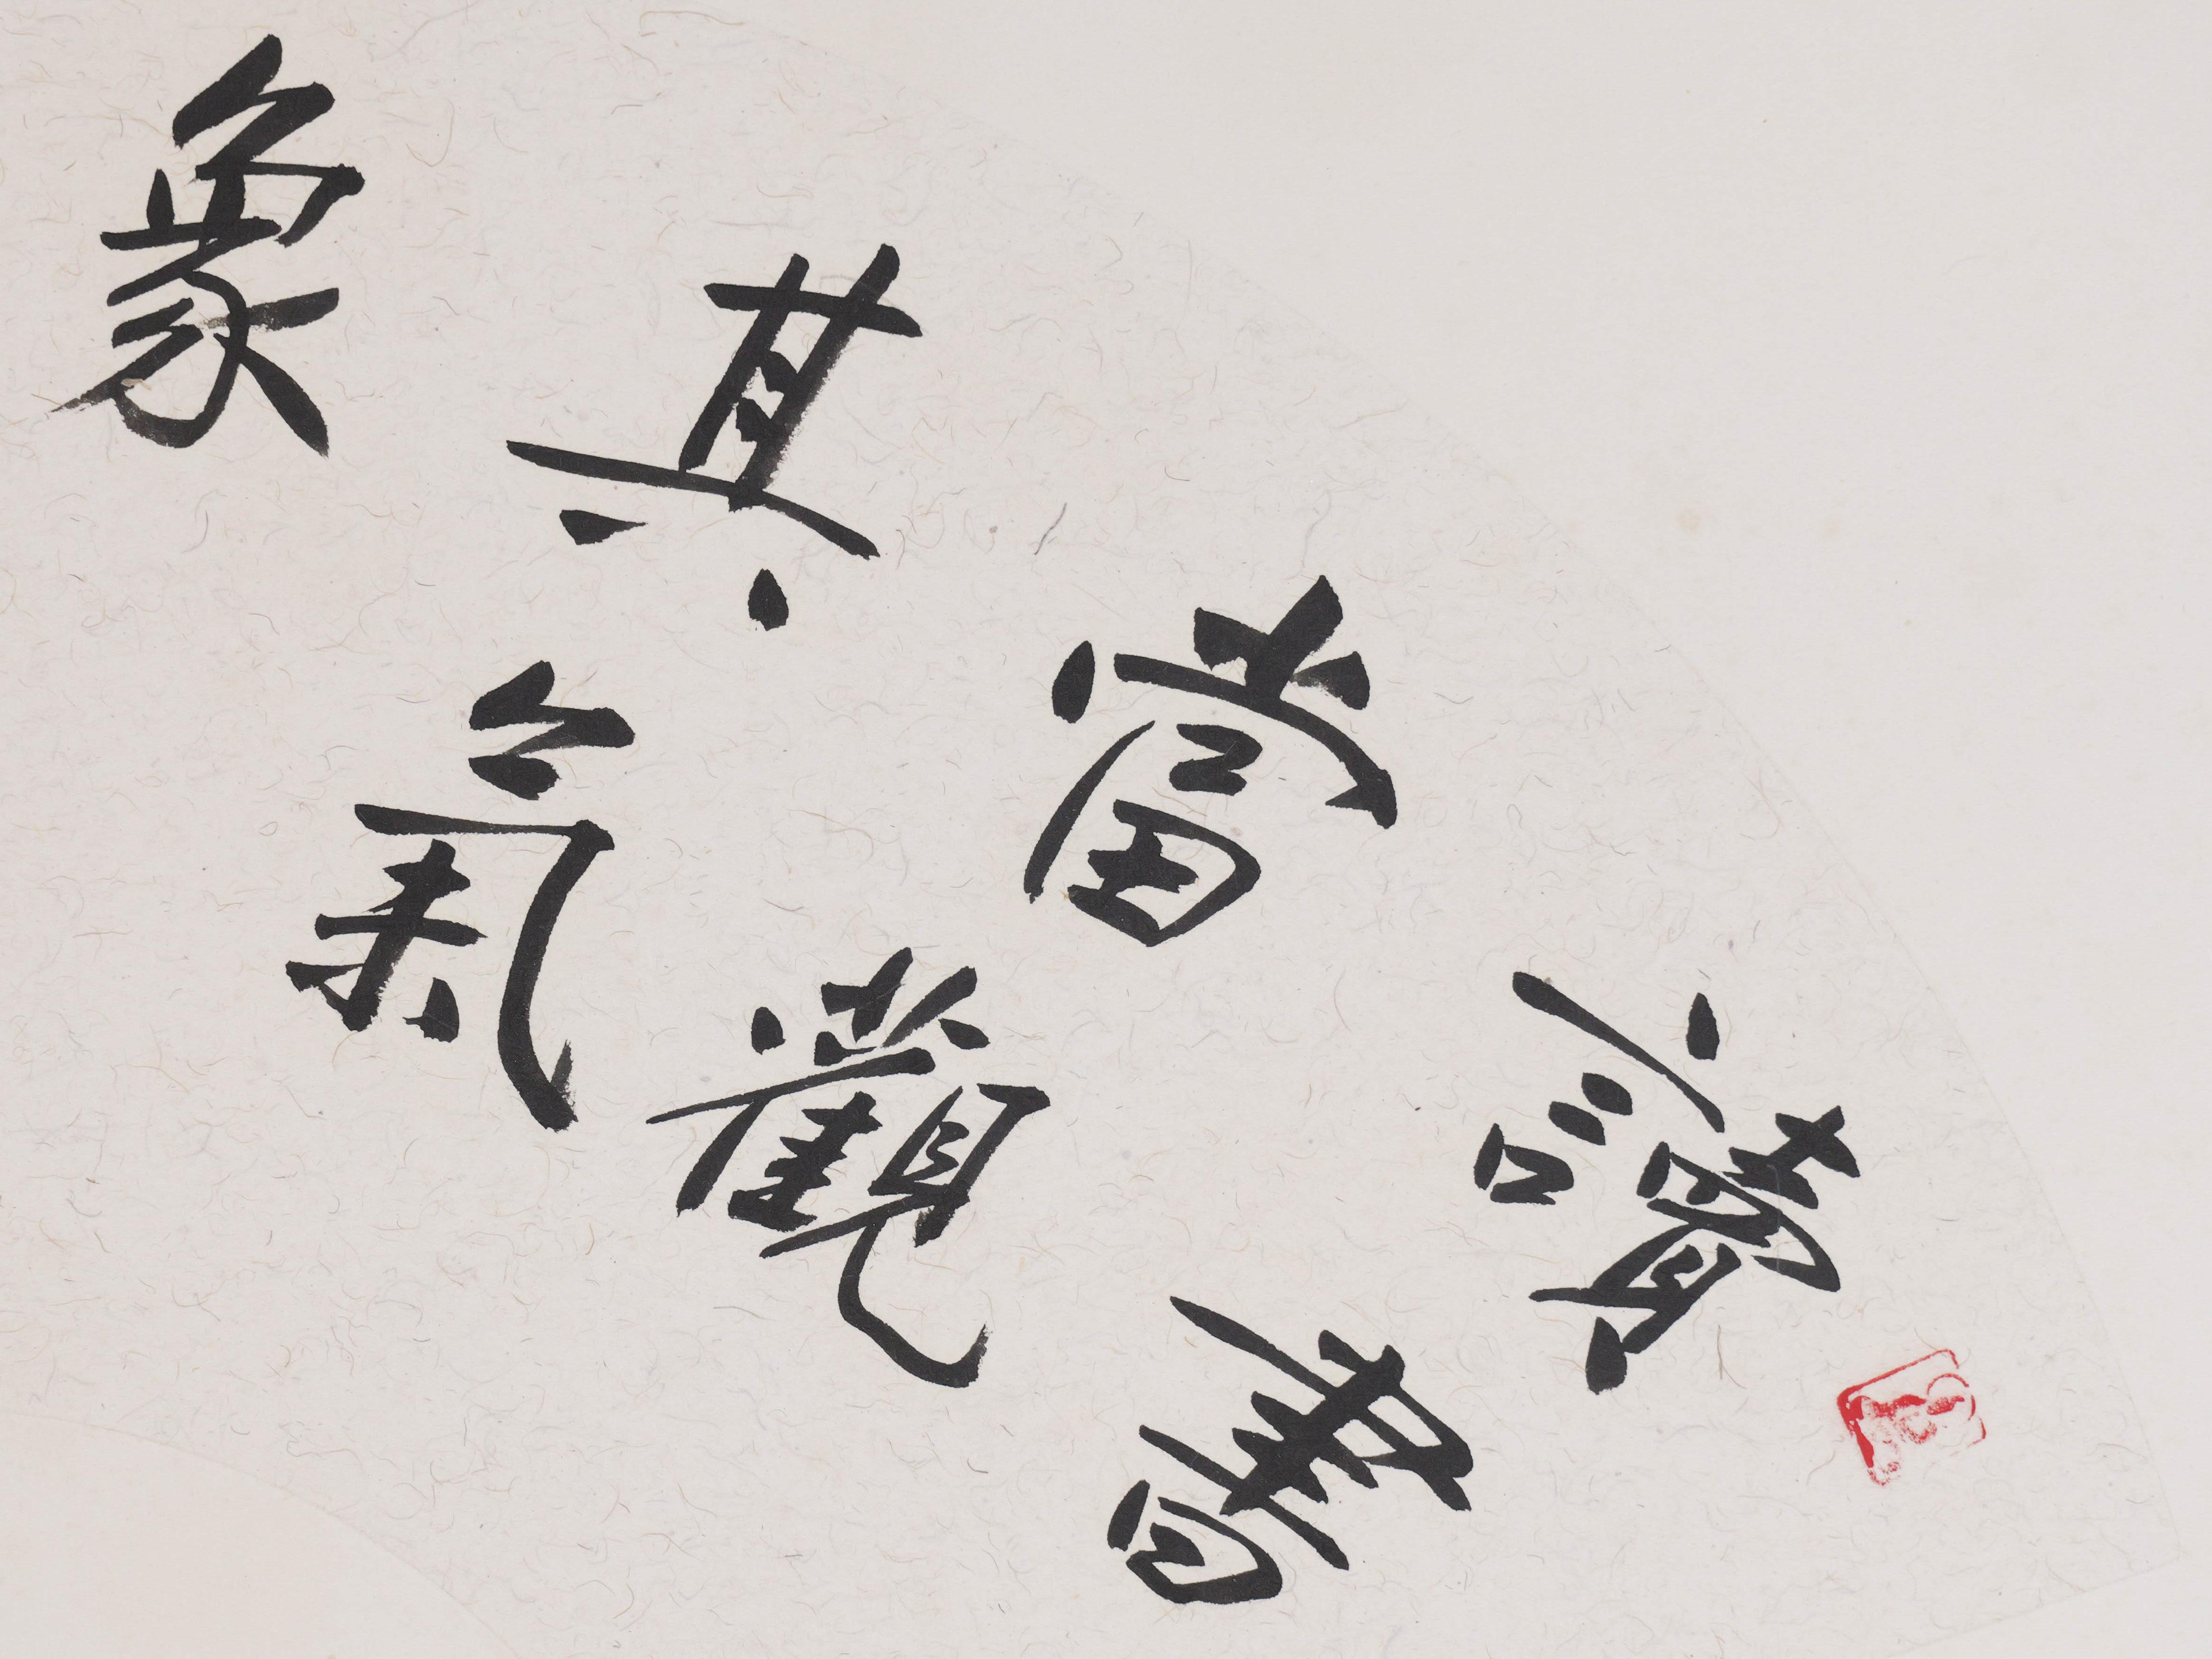 讀書
當觀
其氣
象